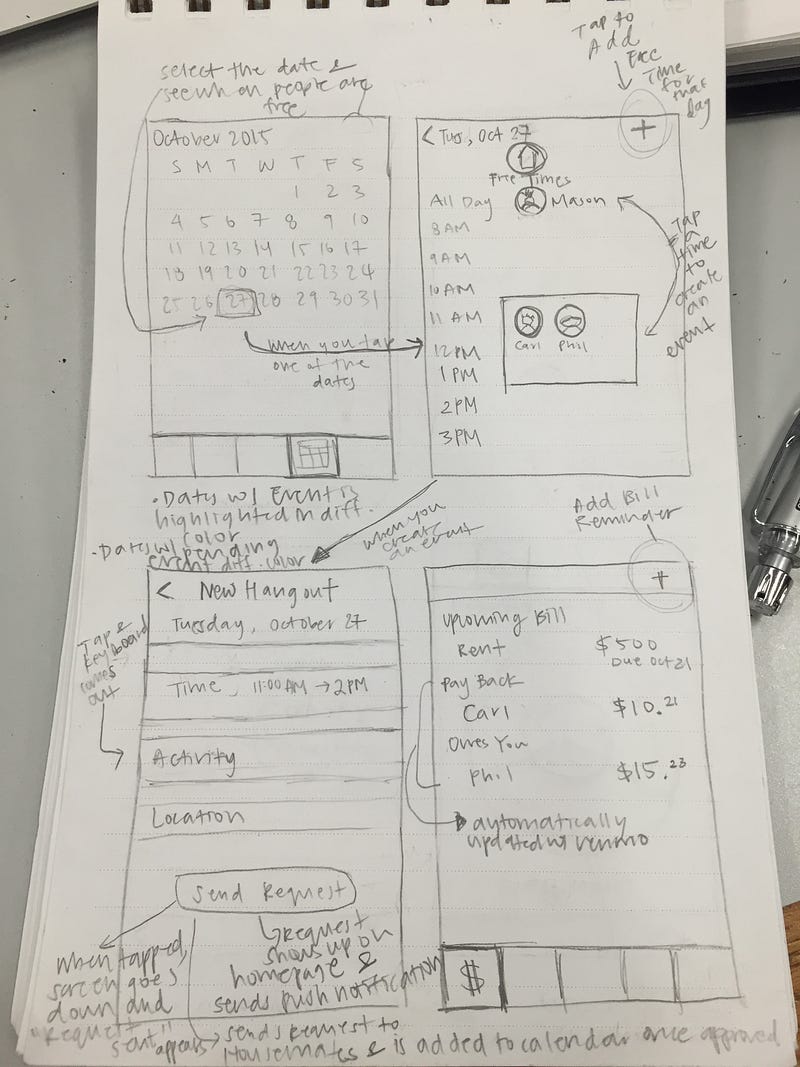 select the date &
see when people are
free
October 2015
S M T W T F S
1 2 3
4 5 6 7 8 9 10
11 12 13 14 15 16 17
18 19 20 21 22 23 24
25 26 27 28 29 30 31
when you tap
one of the
dates
Tap to
Add
Free
Time
for
that
day
< Tues, Oct 27
+
Free Times
All Day Mason
8 AM
9 AM
10 AM
11 AM
Carl Phil
12 PM
1 PM
2 PM
3 PM
Tap
a
time
to
create
an
event
• Dates w/ Event is
highlighted in diff.
color
• Dates w/ pending
event diff. color
when you
create
an event
< New Hangout
Tuesday, October 27
Time, 11:00 AM → 2 PM
Tap &
keyboard
comes
out
Activity
Location
Send Request
when tapped,
screen goes
down and
"Request
sent!!"
appears
Request
shows up on
homepage &
sends push notification
sends Request to
Housemates & is added to calendar once approved
Add Bill
Reminder
+
Upcoming Bill
Rent $500
Due Oct 21
Pay Back
Carl $10.21
Owes You
Phil $15.23
automatically
updated w/ venmo
$